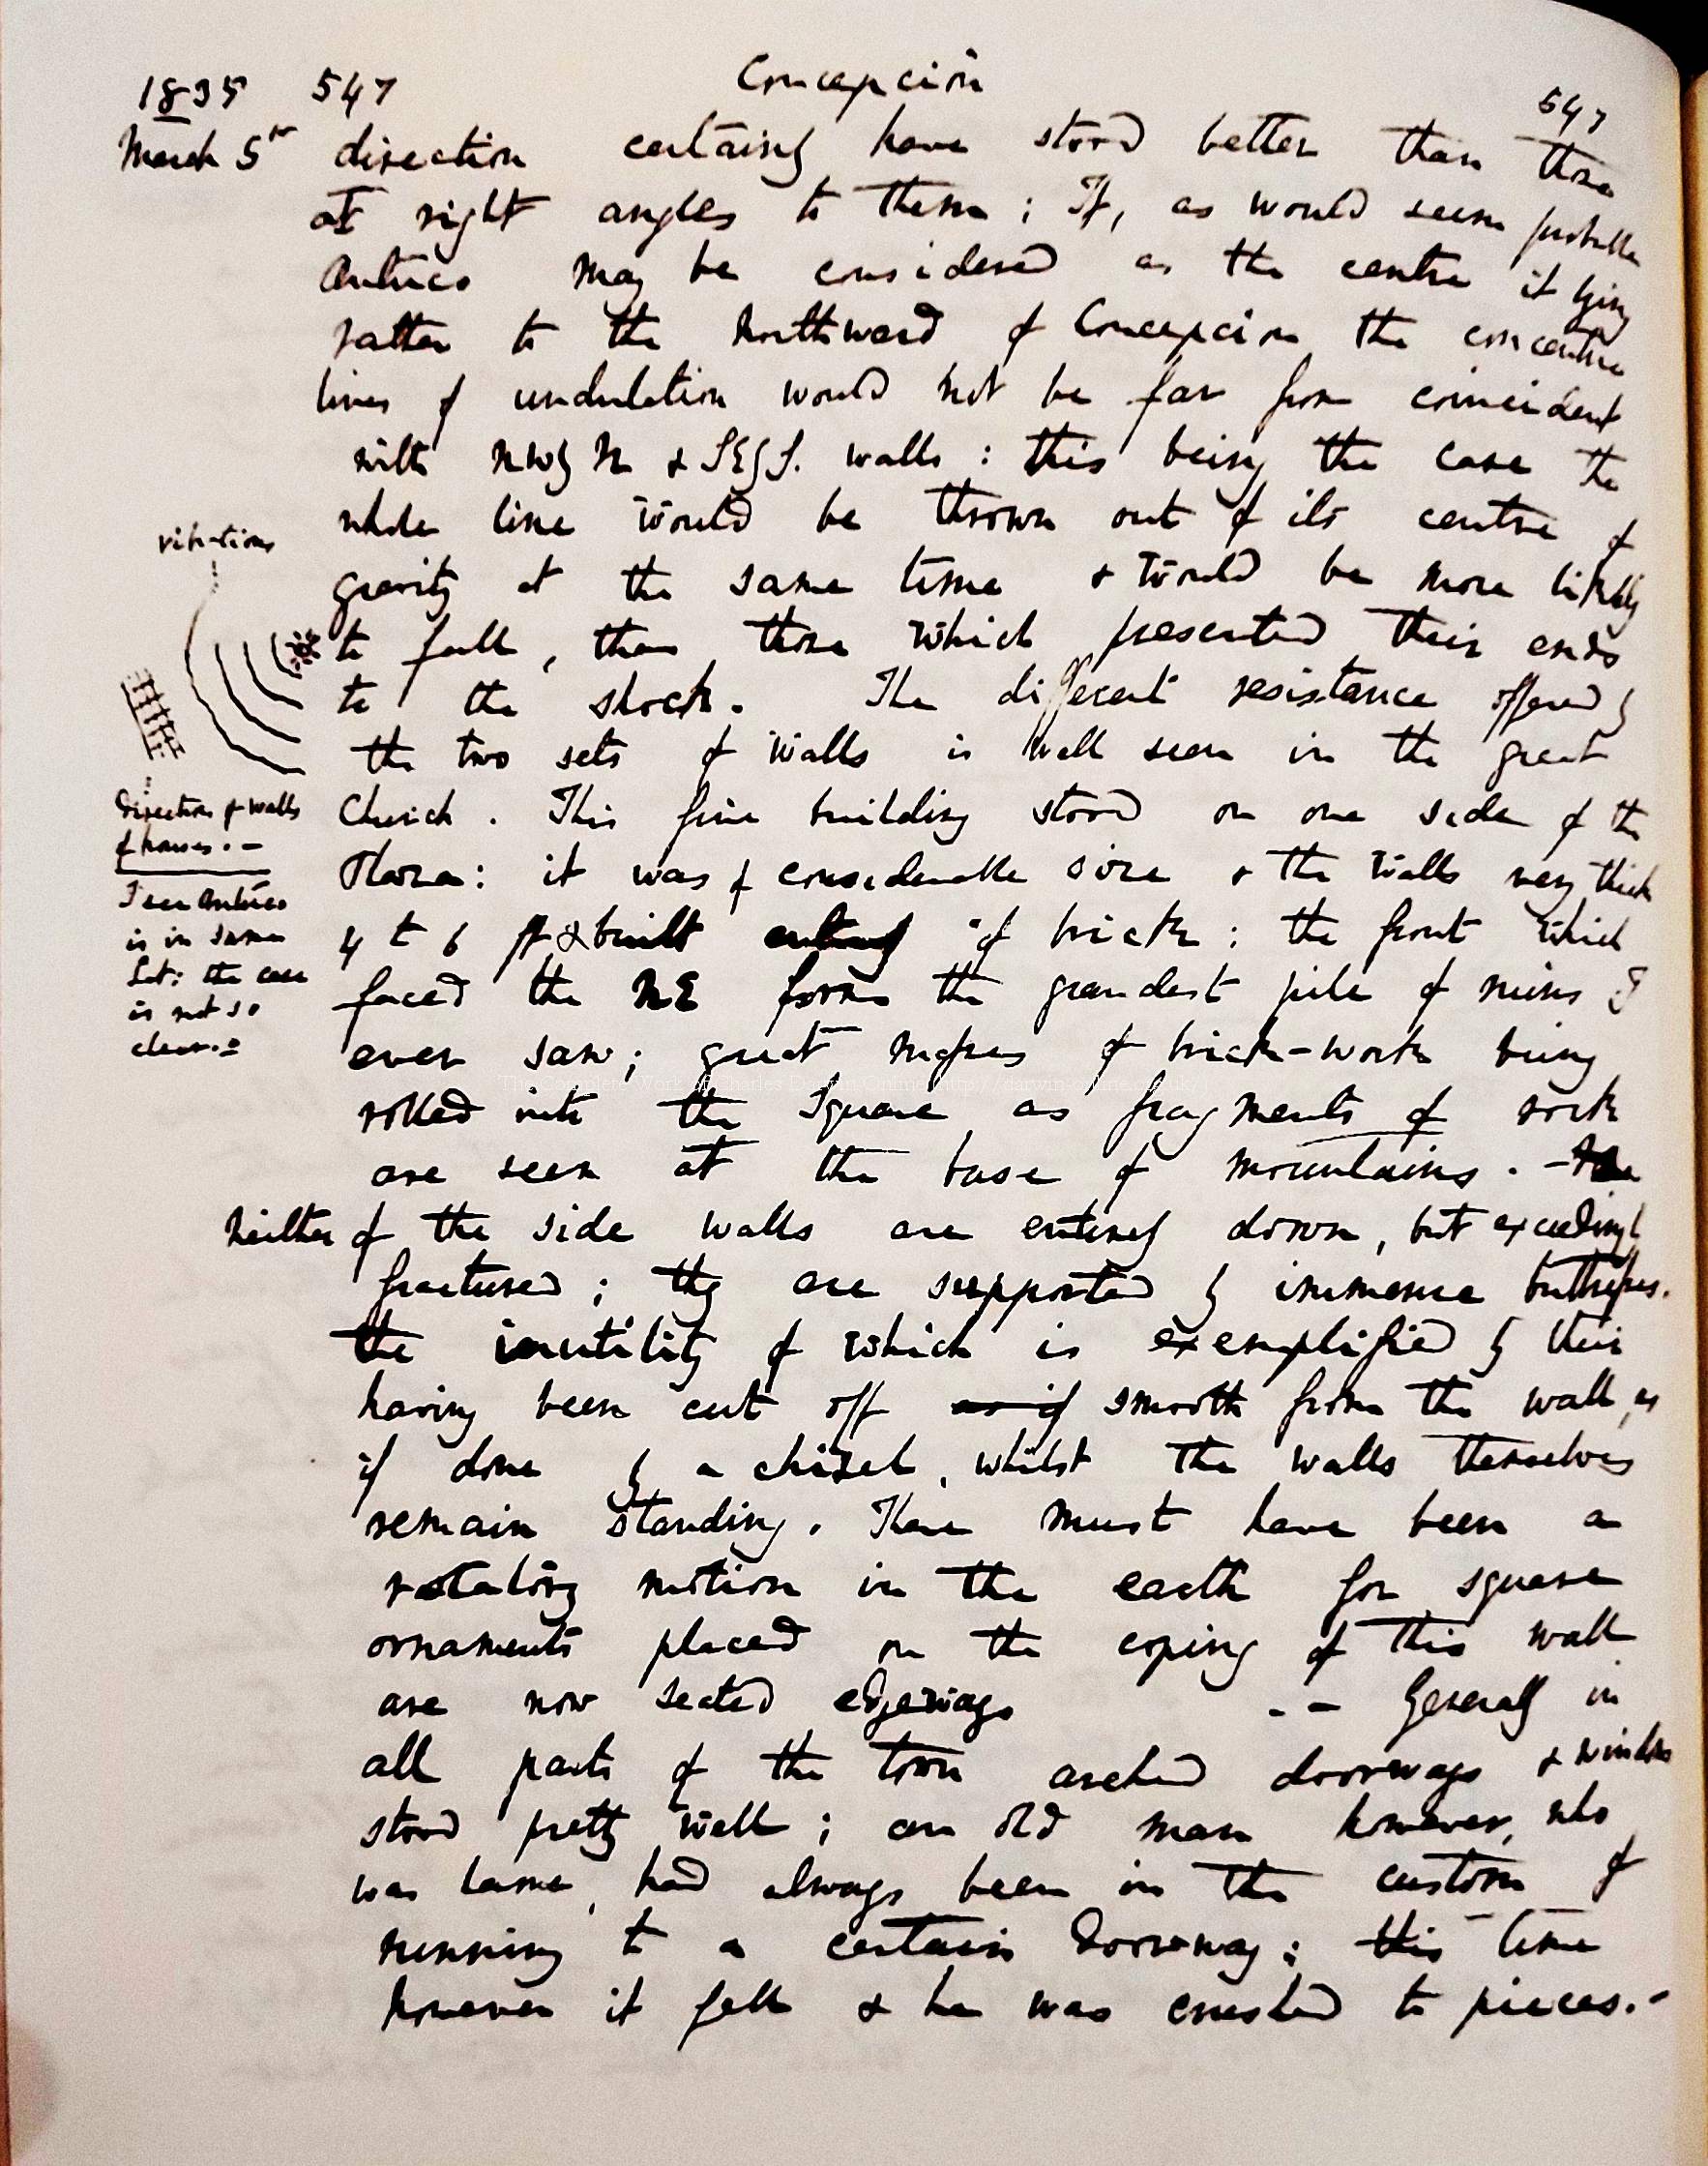 Concepcion
1835 547 547
March 5th direction certainly have stood better than those
at right angles to them; If, as would seem probable
Antuco may be considered as the centre it lying
rather to the Northward of Concepcion the concentric
lines of undulation would not be far from coincident
with NWbN & SEbS. walls: this being the case the
whole line would be thrown out of its centre of
gravity at the same time & would be more likely
to fall, than those which presented their ends
to the shock. The different resistance offered by
the two sets of walls is well seen in the great
Church. This fine building stood on one side of the
Plaza: it was of considerable size & the walls very thick
4 to 6 ft & built entirely of brick: the front which
faced the NE forms the grandest pile of ruins I
ever saw; great masses of brick-work being
rolled into the square as fragments of rock
are seen at the base of mountains. -
Neither of the side walls are entirely down, but exceedingly
fractured; they are supported by immense buttresses.
the inutility of which is exemplified by their
having been cut off as if smooth from the wall, as
if done by a chizel, whilst the walls themselves
remain standing. There must have been a
rotatory motion in the earth for square
ornaments placed on the coping of this wall
are now seated edgeways -- Generally in
all parts of the town arched doorways & windows
stood pretty well; an old man however, who
was lame, had always been in the custom of
running to a certain doorway; this time
however it fell & he was crushed to pieces.-
vibrations
Direction of walls
of houses.-
I see Antuco
is in same
Lat: the case
is not so
clear.=